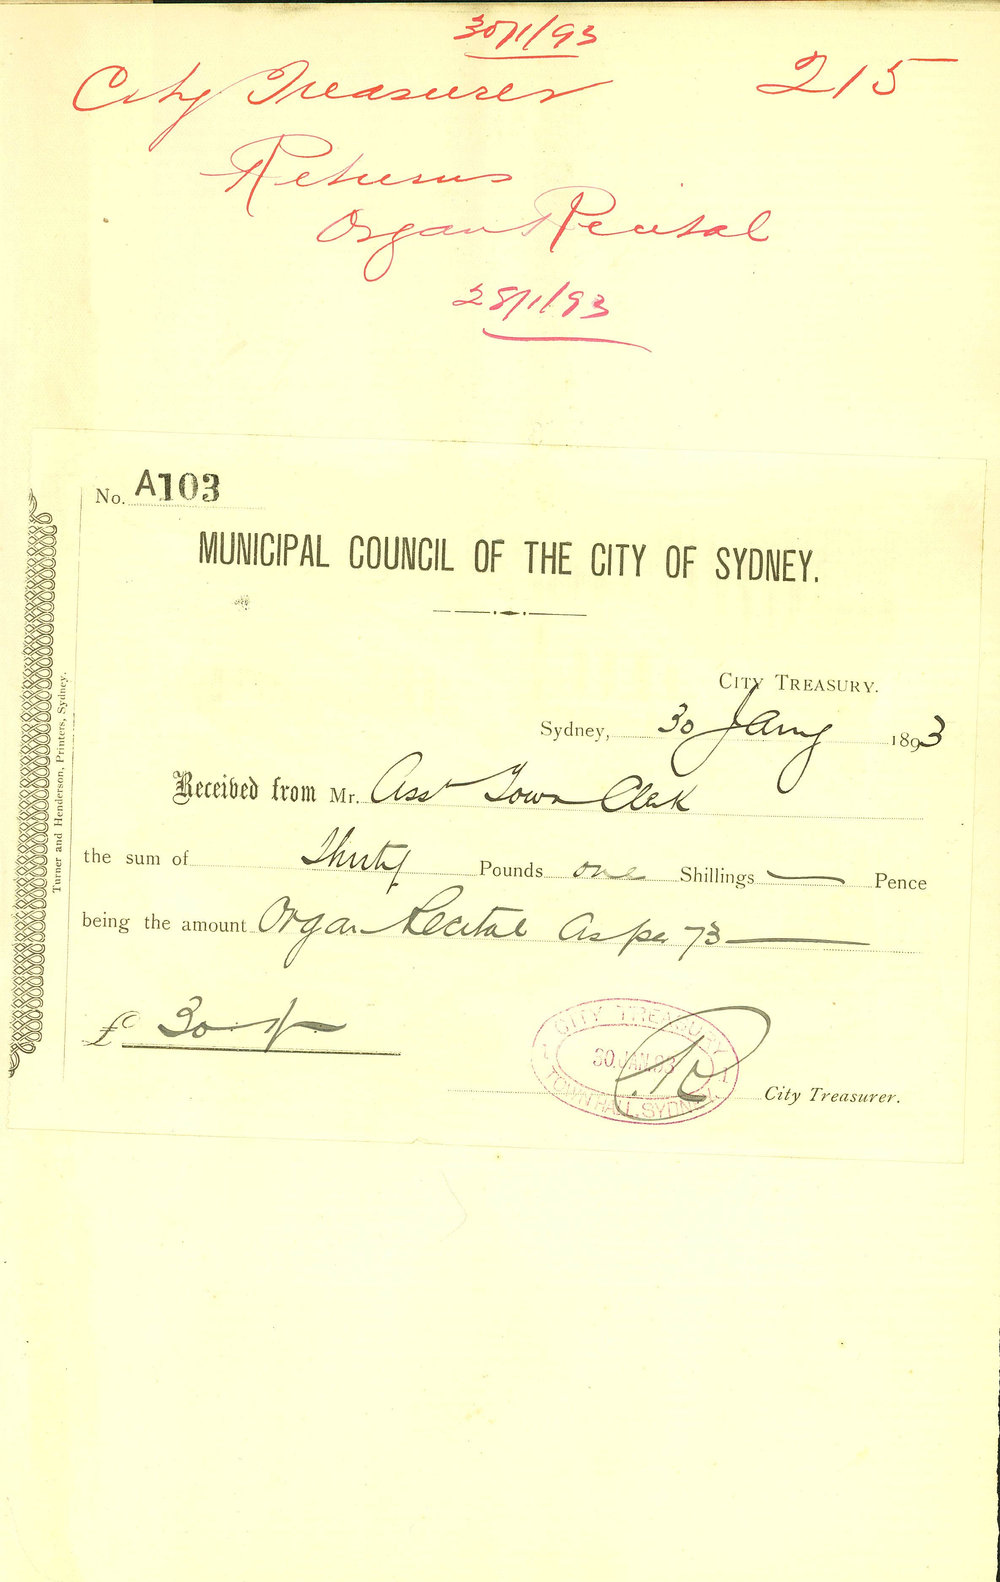 30/1/93
City Treasurer 215
Returns
Organ Recital
28/1/93
No. A103
MUNICIPAL COUNCIL OF THE CITY OF SYDNEY.
CITY TREASURY.
Sydney, 30 Jany 1893
Received from Mr. Asst Town Clerk
the sum of Thirty Pounds one Shillings — Pence
being the amount Organ Recital As per 73
£ 30 . 1/-
CITY TREASURY
30.JAN.93
TOWN HALL SYDNEY.
City Treasurer.
Turner and Henderson, Printers, Sydney.